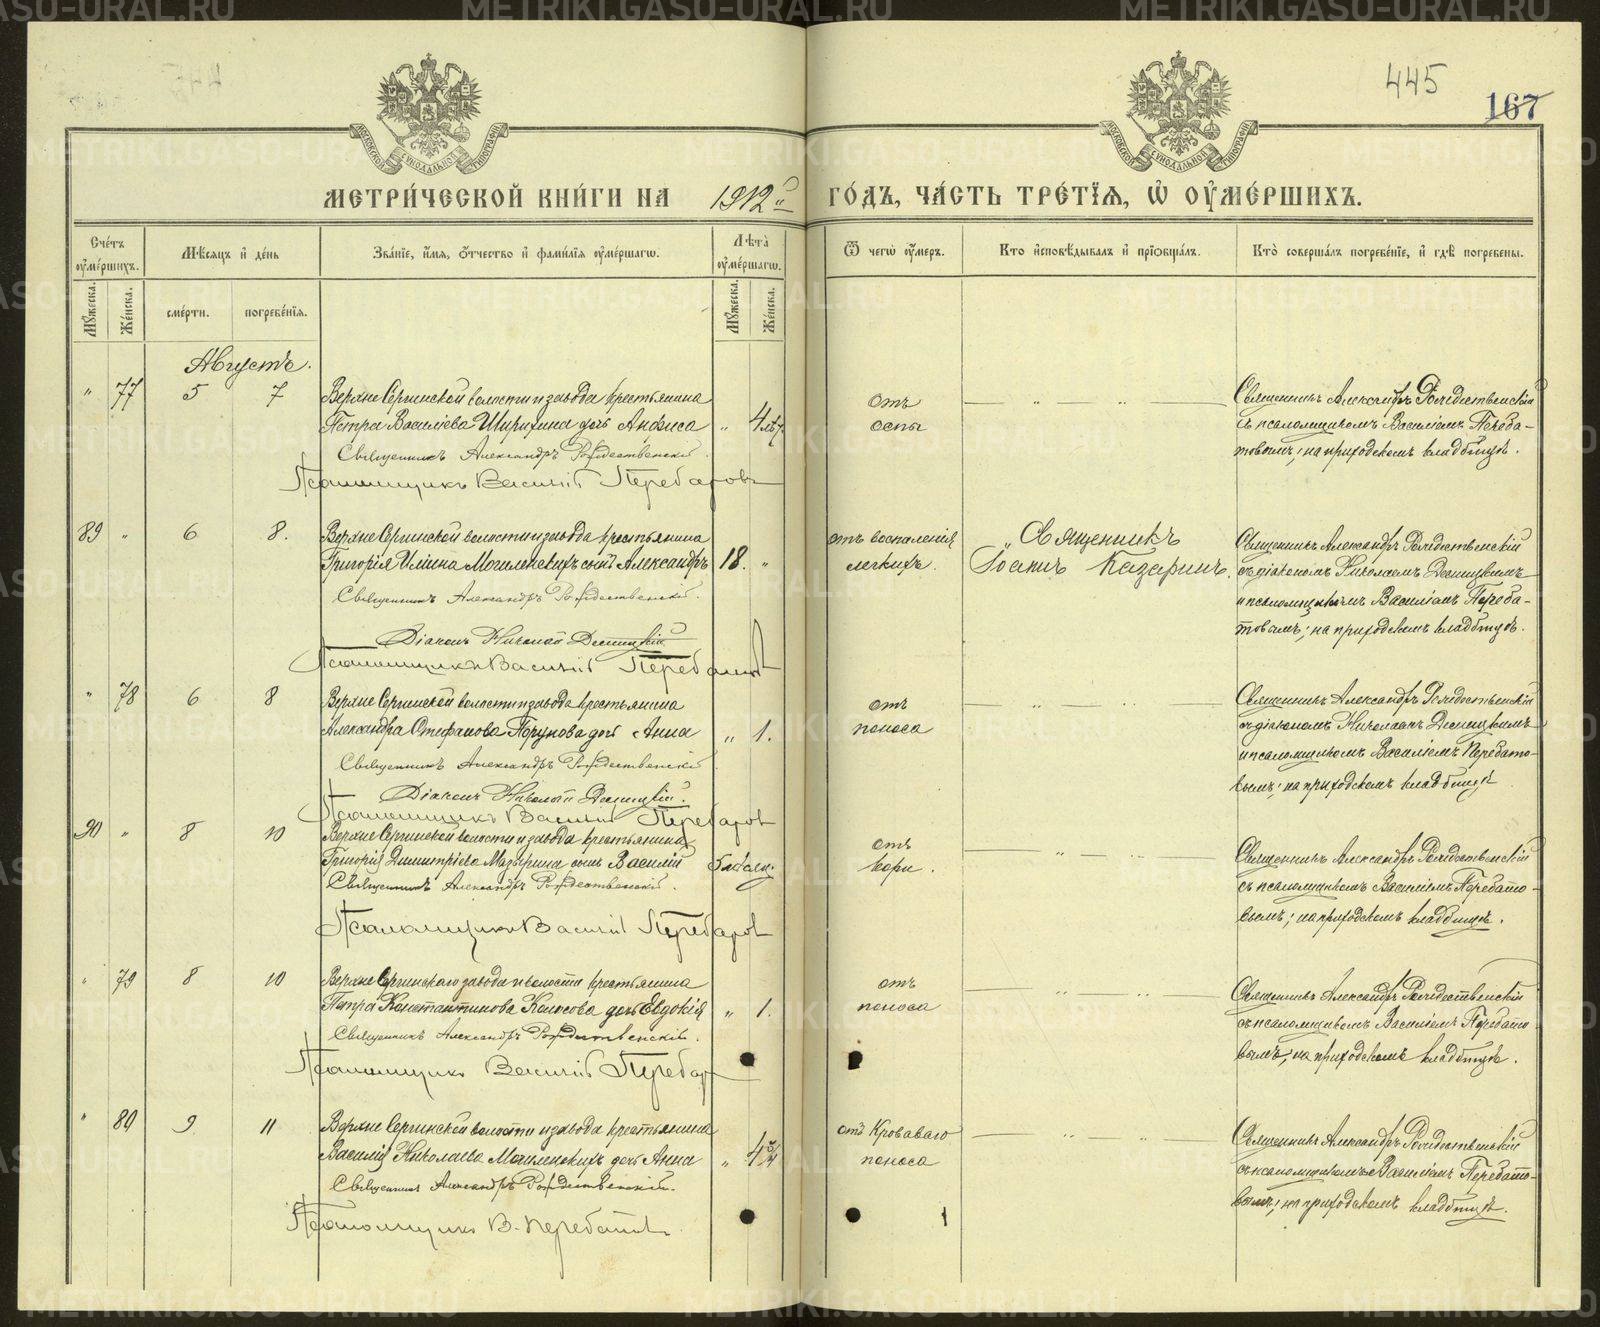 METRIKI.GASO-URAL.RU
445
167
МОСКОВСКОЙ СѴНОДАЛЬНОЙ ТИПОГРАФІИ
МОСКОВСКОЙ СѴНОДАЛЬНОЙ ТИПОГРАФІИ
МЕТРИ́ЧЕСКОЙ КНИ́ГИ НА 1912й ГО́ДЪ, ЧА́СТЬ ТРЕ́ТІѦ, Ѽ ОУМЕ́РШИХЪ.
Сче́тъ оуме́ршихъ.
Мѣсяцъ и де́нь
Зва́ніе, и́мя, о́тчество и фами́лія оуме́ршагѡ.
Лѣта̀ оуме́ршагѡ.
Ѿ чегѡ̀ оу́меръ.
Кто̀ исповѣ́дывалъ и прїѡбща́лъ.
Кто̀ соверша́лъ погребе́ніе, и гдѣ̀ погребены̀.
Мꙋ́жеска.
Же́нска.
сме́рти.
погребе́нїя.
Мꙋ́жеска.
Же́нска.
Августъ.
" 77 5 7
Верхне Сергинской волости и завода крестьянина
Петра Василіева Ширихина дочь Анфиса " 4 лѣт
Священникъ Александръ Рождественскій
Псаломщикъ Василій Перебатовъ
отъ
оспы
Священникъ Александръ Рождественскій
съ псаломщикомъ Василіемъ Переба-
товымъ; на приходскомъ кладбищѣ.
89 " 6 8.
Верхне Сергинской волости и завода крестьянина
Григорія Ильина Могиленскихъ сынъ Александръ 18. "
Священникъ Александръ Рождественскій.
Діаконъ Николай Десницкій
Псаломщикъ Василій Перебатовъ
отъ воспаленія
легкихъ.
Священникъ
Іоаннъ Казаринъ.
Священникъ Александръ Рождественскій
съ діакономъ Николаемъ Десницкимъ
и псаломщикомъ Василіемъ Переба-
товымъ; на приходскомъ кладбищѣ.
" 78 6 8
Верхне Сергинской волости и завода крестьянина
Александра Стефанова дочь Анна " 1.
Священникъ Александръ Рождественскій
Діаконъ Николай Десницкій.
Псаломщикъ Василій Перебатовъ
отъ
поноса
Священникъ Александръ Рождественскій
съ діакономъ Николаемъ Десницкимъ
и псаломщикомъ Василіемъ Перебато-
вымъ; на приходскомъ кладбищѣ
90 " 8 10
Верхне Сергинской волости и завода крестьянина
Григорія Димитріева Мазырина сынъ Василій
Священникъ Александръ Рождественскій.
Псаломщикъ Василій Перебатовъ
отъ
кори.
Священникъ Александръ Рождественскій
съ псаломщикомъ Василіемъ Перебато-
вымъ; на приходскомъ кладбищѣ.
" 79 8 10
Верхне Сергинского завода и волости крестьянина
Петра Константинова дочь Евдокія " 1.
Священникъ Александръ Рождественскій.
Псаломщикъ Василій Перебат
отъ
поноса
Священникъ Александръ Рождественскій
съ псаломщикомъ Василіемъ Перебато-
вымъ; на приходскомъ кладбищѣ.
" 80 9 11
Верхне Сергинской волости и завода крестьянина
Василія Николаева Могиленскихъ дочь Анна "
Священникъ Александръ Рождественскій.
Псаломщикъ В. Перебатовъ
отъ Кроваваго
поноса
Священникъ Александръ Рождественскій
съ псаломщикомъ Василіемъ Перебато-
вымъ; на приходскомъ кладбищѣ.